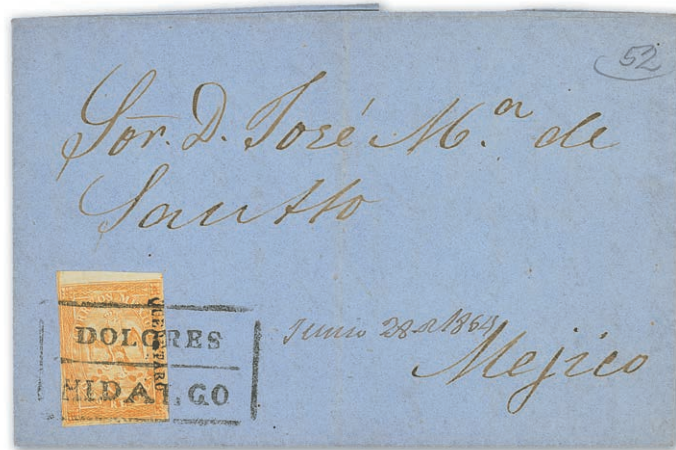 52
Sor. D. José M.ª de
Santto
QUERETARO
DOLORES
HIDALGO
Junio 28 1864
Mejico